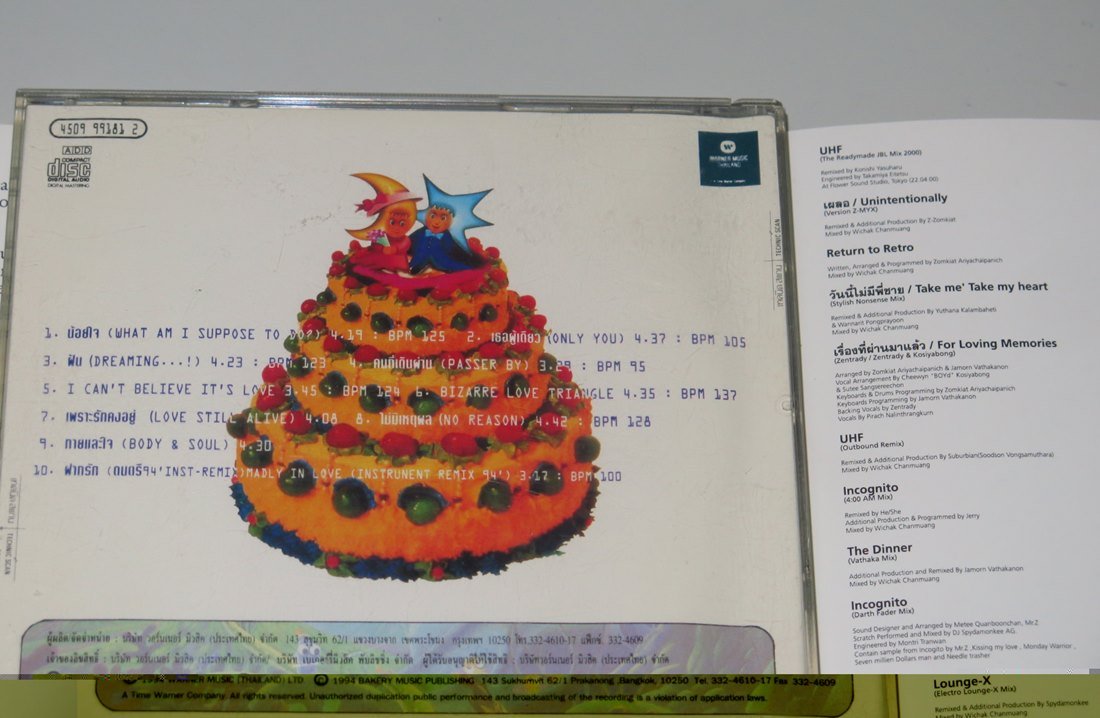 4509 99181 2
ADD
COMPACT
disc
DIGITAL AUDIO
DIGITAL MASTERING
WARNER MUSIC
THAILAND
1. น้อยใจ (WHAT AM I SUPPOSE TO DO?) 4.19 : BPM 125 2. เธอผู้เดียว (ONLY YOU) 4.37 : BPM 105
3. ฝัน (DREAMING...!) 4.23 : BPM 123 4. คนที่เดินผ่าน (PASSER BY) 3.29 : BPM 95
5. I CAN'T BELIEVE IT'S LOVE 3.45 : BPM 124 6. BIZARRE LOVE TRIANGLE 4.35 : BPM 137
7. เพราะรักคงอยู่ (LOVE STILL ALIVE) 4.08 8. ไม่มีเหตุผล (NO REASON) 4.42 : BPM 128
9. กายและใจ (BODY & SOUL) 4.30
10. ฝากรัก (ดนตรี94'INST-REMIX)MADLY IN LOVE (INSTRUNENT REMIX 94') 3.17 : BPM 100
TECHNIC SCAN
ผู้ผลิต/จัดจำหน่าย : บริษัท วอร์นเนอร์ มิวสิค (ประเทศไทย) จำกัด 143 สุขุมวิท 62/1 แขวงบางจาก เขตพระโขนง กรุงเทพฯ 10250 โทร.332-4610-17 แฟ็กซ์. 332-4609
เจ้าของลิขสิทธิ์ : บริษัท วอร์นเนอร์ มิวสิค (ประเทศไทย) จำกัด/ บริษัท เบเกอรี่มิวสิค พับลิชชิ่ง จำกัด ผู้ได้รับอนุญาตให้ใช้สิทธิ์ : บริษัทวอร์นเนอร์ มิวสิค (ประเทศไทย) จำกัด
1994 WARNER MUSIC (THAILAND) LTD. © 1994 BAKERY MUSIC PUBLISHING 143 Sukhumvit 62/1 Prakanong ,Bangkok, 10250 Tel. 332-4610-17 Fax 332-4609
A Time Warner Company. All rights reserved. Unauthorized duplication public performance and broadcasting of the recording is a violation of application laws.
UHF
(The Readymade JBL Mix 2000)
Remixed by Konishi Yasuharu
Engineered by Takamiya Eitetsu
At Flower Sound Studio, Tokyo (22.04.00)
เผลอ / Unintentionally
(Version Z-MYX)
Remixed & Additional Production By Z-Zomkiat
Mixed by Wichak Chanmuang
Return to Retro
Written, Arranged & Programmed by Zomkiat Ariyachaipanich
Mixed by Wichak Chanmuang
วันนี้ไม่มีพี่ชาย / Take me' Take my heart
(Stylish Nonsense Mix)
Remixed & Additional Production By Yuthana Kalambaheti
& Wannarit Pongprayoon
Mixed by Wichak Chanmuang
เรื่องที่ผ่านมาแล้ว / For Loving Memories
(Zentrady / Zentrady & Kosiyabong)
Arranged by Zomkiat Ariyachaipanich & Jamorn Vathakanon
Vocal Arrangement By Cheewyn "BOYd" Kosiyabong
& Sutee Sangsereechon
Keyboards & Drums Programming by Zomkiat Ariyachaipanich
Keyboards Programming by Jamorn Vathakanon
Backing Vocals by Zentrady
Vocals By Pirach Nalinthrangkurn
UHF
(Outbound Remix)
Remixed & Additional Production By Suburbian(Soodson Vongsamuthara)
Mixed by Wichak Chanmuang
Incognito
(4:00 AM Mix)
Remixed by He/She
Additional Production & Programmed by Jerry
Mixed by Wichak Chanmuang
The Dinner
(Vathaka Mix)
Additional Production and Remixed By Jamorn Vathakanon
Mixed by Wichak Chanmuang
Incognito
(Darth Fader Mix)
Sound Designer and Arranged by Metee Quanboonchan, Mr.Z
Scratch Performed and Mixed by DJ Spydamonkee AG.
Engineered by Montri Tranwan
Contain sample from Incognito by Mr.Z ,Kissing my love , Monday Warnor ,
Seven million Dollars man and Needle trasher
Lounge-X
(Electro Lounge-X Mix)
Remixed & Additional Production By Spydamonkee
Mixed by Wichak Chanmuang